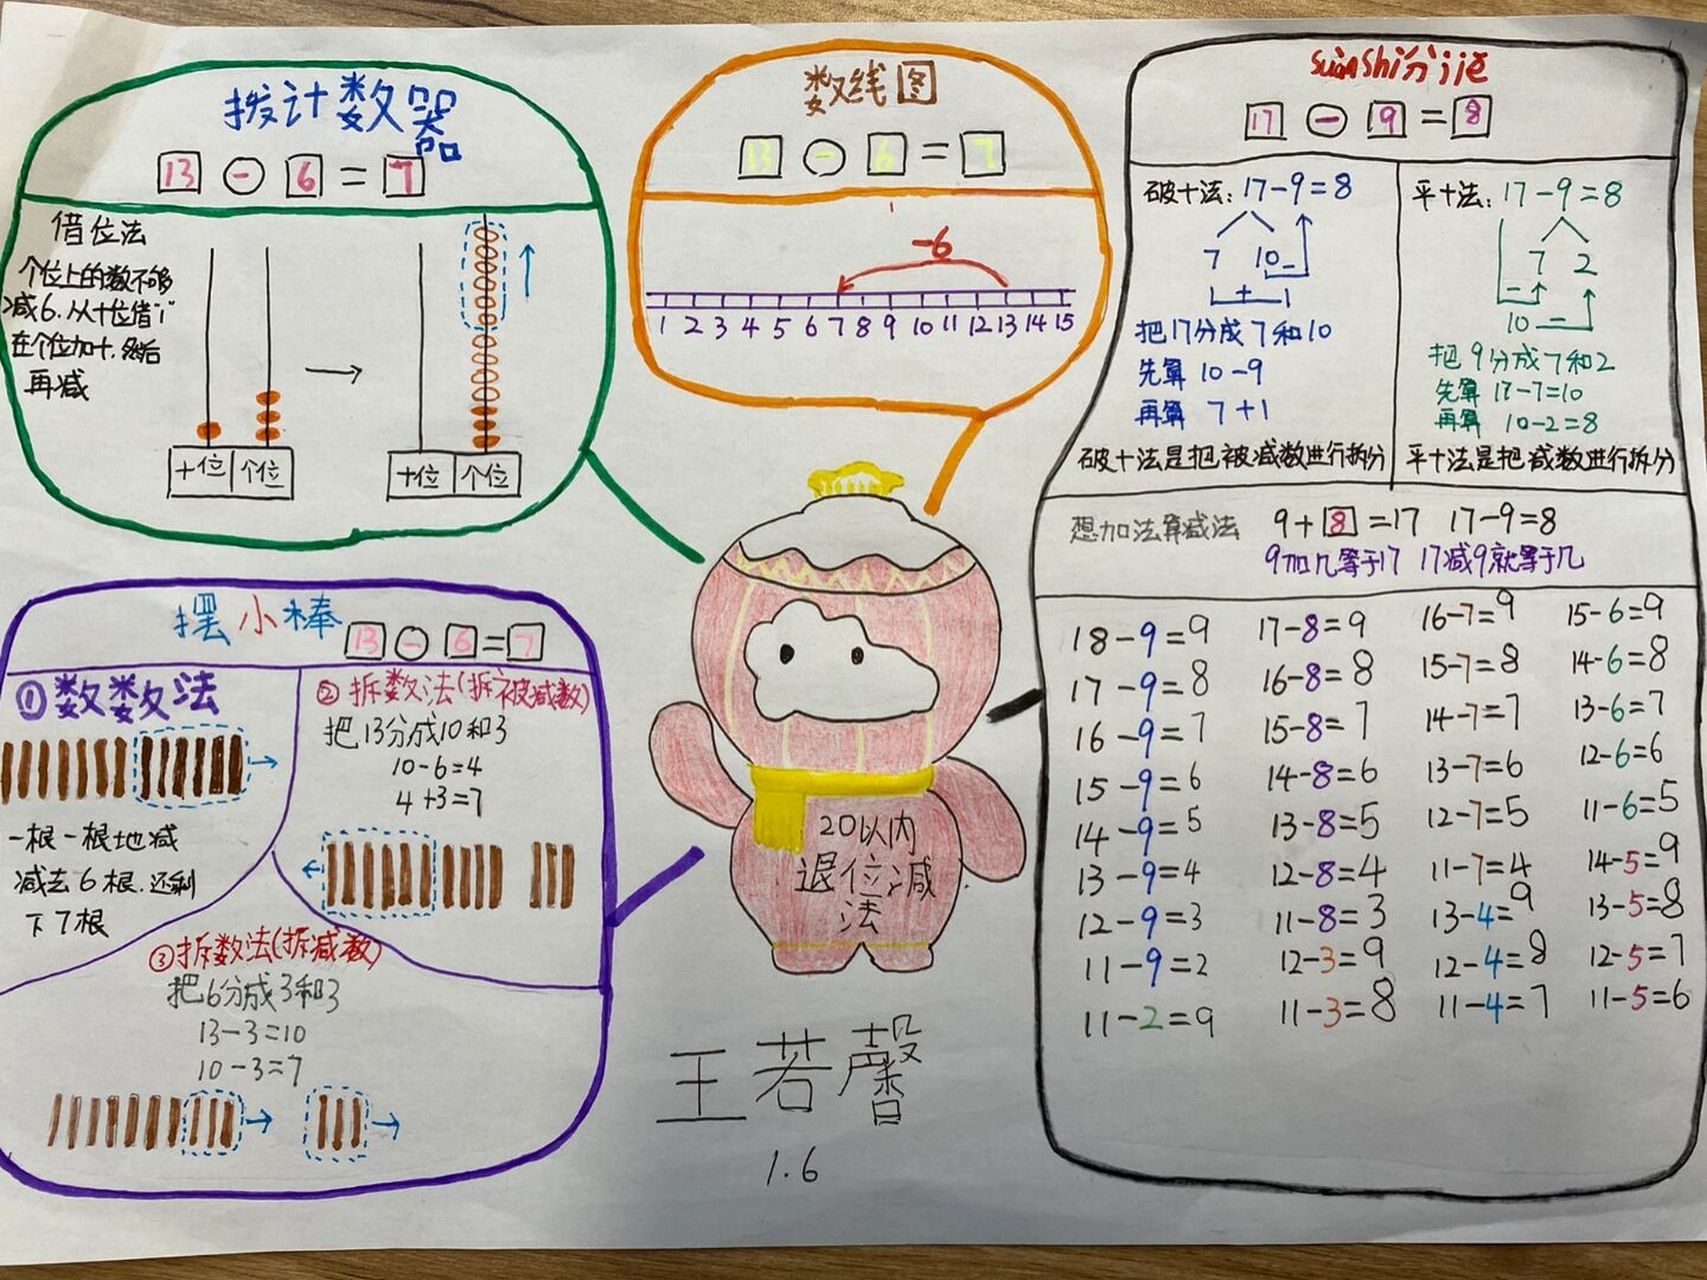 拨计数器
13 - 6 = 7
借位法
个位上的数不够
减6.从十位借"1"
在个位加十.然后
再减
十位 个位
十位 个位
数线图
13 - 6 = 7
-6
1 2 3 4 5 6 7 8 9 10 11 12 13 14 15
suànshì分jiě
17 - 9 = 8
破十法: 17-9=8
7 10 -
1 + 1
把17分成7和10
先算 10-9
再算 7+1
破十法是把被减数进行拆分
平十法: 17-9=8
7 2
-
10 -
把9分成7和2
先算 17-7=10
再算 10-2=8
平十法是把减数进行拆分
想加法算减法 9+8=17 17-9=8
9加几等于17 17减9就等于几
18-9=9 17-8=9 16-7=9 15-6=9
17-9=8 16-8=8 15-7=8 14-6=8
16-9=7 15-8=7 14-7=7 13-6=7
15-9=6 14-8=6 13-7=6 12-6=6
14-9=5 13-8=5 12-7=5 11-6=5
13-9=4 12-8=4 11-7=4 14-5=9
12-9=3 11-8=3 13-4=9 13-5=8
11-9=2 12-3=9 12-4=8 12-5=7
11-2=9 11-3=8 11-4=7 11-5=6
摆小棒 13 - 6 = 7
①数数法
一根一根地减
减去6根.还剩
下7根
②拆数法(拆被减数)
把13分成10和3
10-6=4
4+3=7
③拆数法(拆减数)
把6分成3和3
13-3=10
10-3=7
20以内
退位减
法
王若馨
1.6